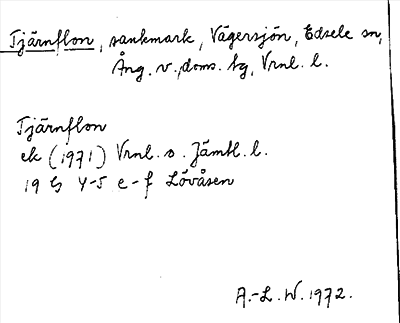 Tjärnflon, sankmark, Vägersjön, Edsele sn,
Ång. v. doms. hg, Vrnl. l.
Tjärnflon
ek (1971) Vrnl. o. Jämtl. l.
19 G 4-5 e-f Lövåsen
A.-L. W. 1972.